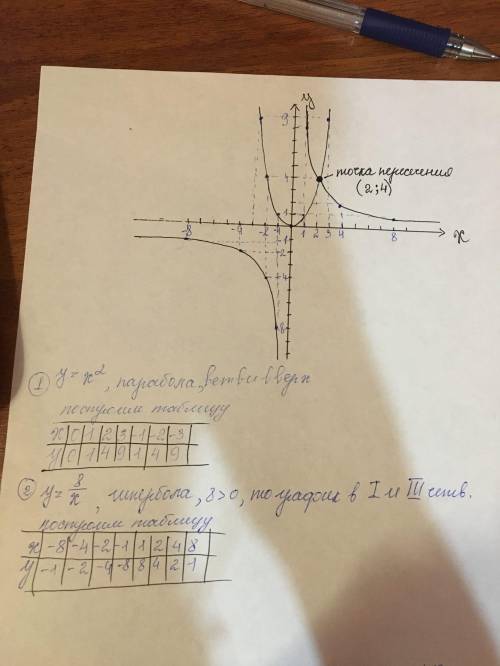 y
9
точка пересечения
(2;4)
4
1
-8 -4 -2 -1 1 2 3 4 8 x
-1
-2
-4
-8
① y = x², парабола, ветви вверх
построим таблицу
x 0 1 2 3 -1 -2 -3
y 0 1 4 9 1 4 9
② y = 8/x, гипербола, 8>0, то график в I и III четв.
построим таблицу
x -8 -4 -2 -1 1 2 4 8
y -1 -2 -4 -8 8 4 2 1